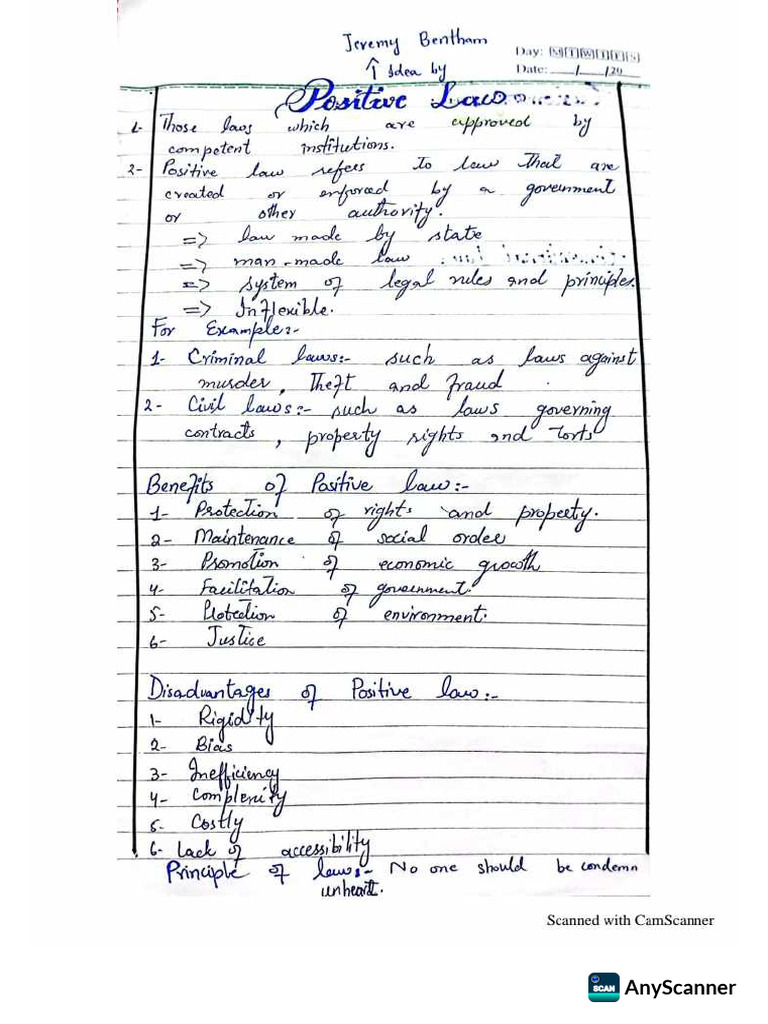 Jeremy Bentham
Day: M T W T F S
↑ Idea by
Date: __/__/20__
Positive Law
1- Those laws which are approved by
competent institutions.
2- Positive law refers to law that are
created or enforced by a government
or other authority.
=> law made by state
=> man-made law
=> system of legal rules and principles.
=> Inflexible.
For Example:-
1- Criminal laws:- such as laws against
murder, Theft and fraud
2- Civil laws:- such as laws governing
contracts, property rights and torts
Benefits of Positive law:-
1- Protection of rights and property.
2- Maintenance of social order
3- Promotion of economic growth
4- Facilitation of government.
5- Protection of environment.
6- Justice
Disadvantages of Positive law:-
1- Rigidity
2- Bias
3- Inefficiency
4- Complenity
5- Costly
6- Lack of accessibility
Principle of laws:- No one should be condemn
unheart.
Scanned with CamScanner
SCAN AnyScanner